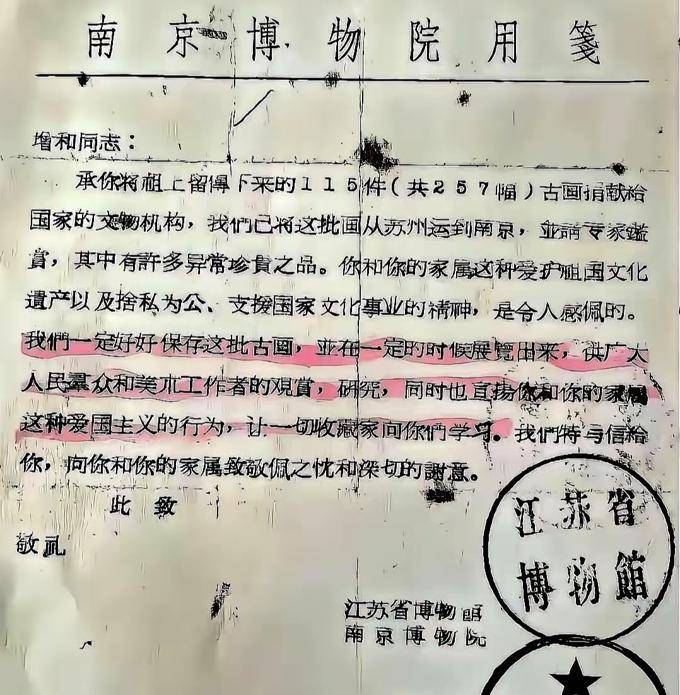 南京博物院用箋
增和同志：
承你将祖上留傳下来的115件（共257幅）古画捐献給
国家的文物机构，我們已将这批画从苏州运到南京，並請专家鑑
賞，其中有許多异常珍貴之品。你和你的家属这种爱护祖国文化
遺产以及捨私为公、支援国家文化事业的精神，是令人感佩的。
我們一定好好保存这批古画，並在一定的时候展覽出来，供广大
人民羣众和美朮工作者的观賞，研究，同时也直揚你和你的家属
这种爱国主义的行为，让一切收藏家向你們学习。我們特写信給
你，向你和你的家属致敬佩之忱和深切的謝意。
此致
敬礼
江苏省博物館
南京博物院
江苏省
博物館